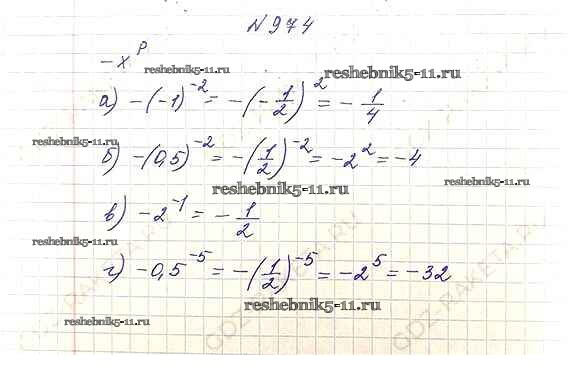 N974
-x^p
reshebnik5-11.ru
reshebnik5-11.ru
а) -(-1)^-2 = -(-1/2)^2 = -1/4
reshebnik5-11.ru
б) -(0,5)^-2 = -(1/2)^-2 = -2^2 = -4
reshebnik5-11.ru
reshebnik5-11.ru
в) -2^-1 = -1/2
reshebnik5-11.ru
г) -0,5^-5 = -(1/2)^-5 = -2^5 = -32
reshebnik5-11.ru
reshebnik5-11.ru
GDZ-RAKETA.RU
GDZ-RAKETA.RU
GDZ-RAKETA.RU